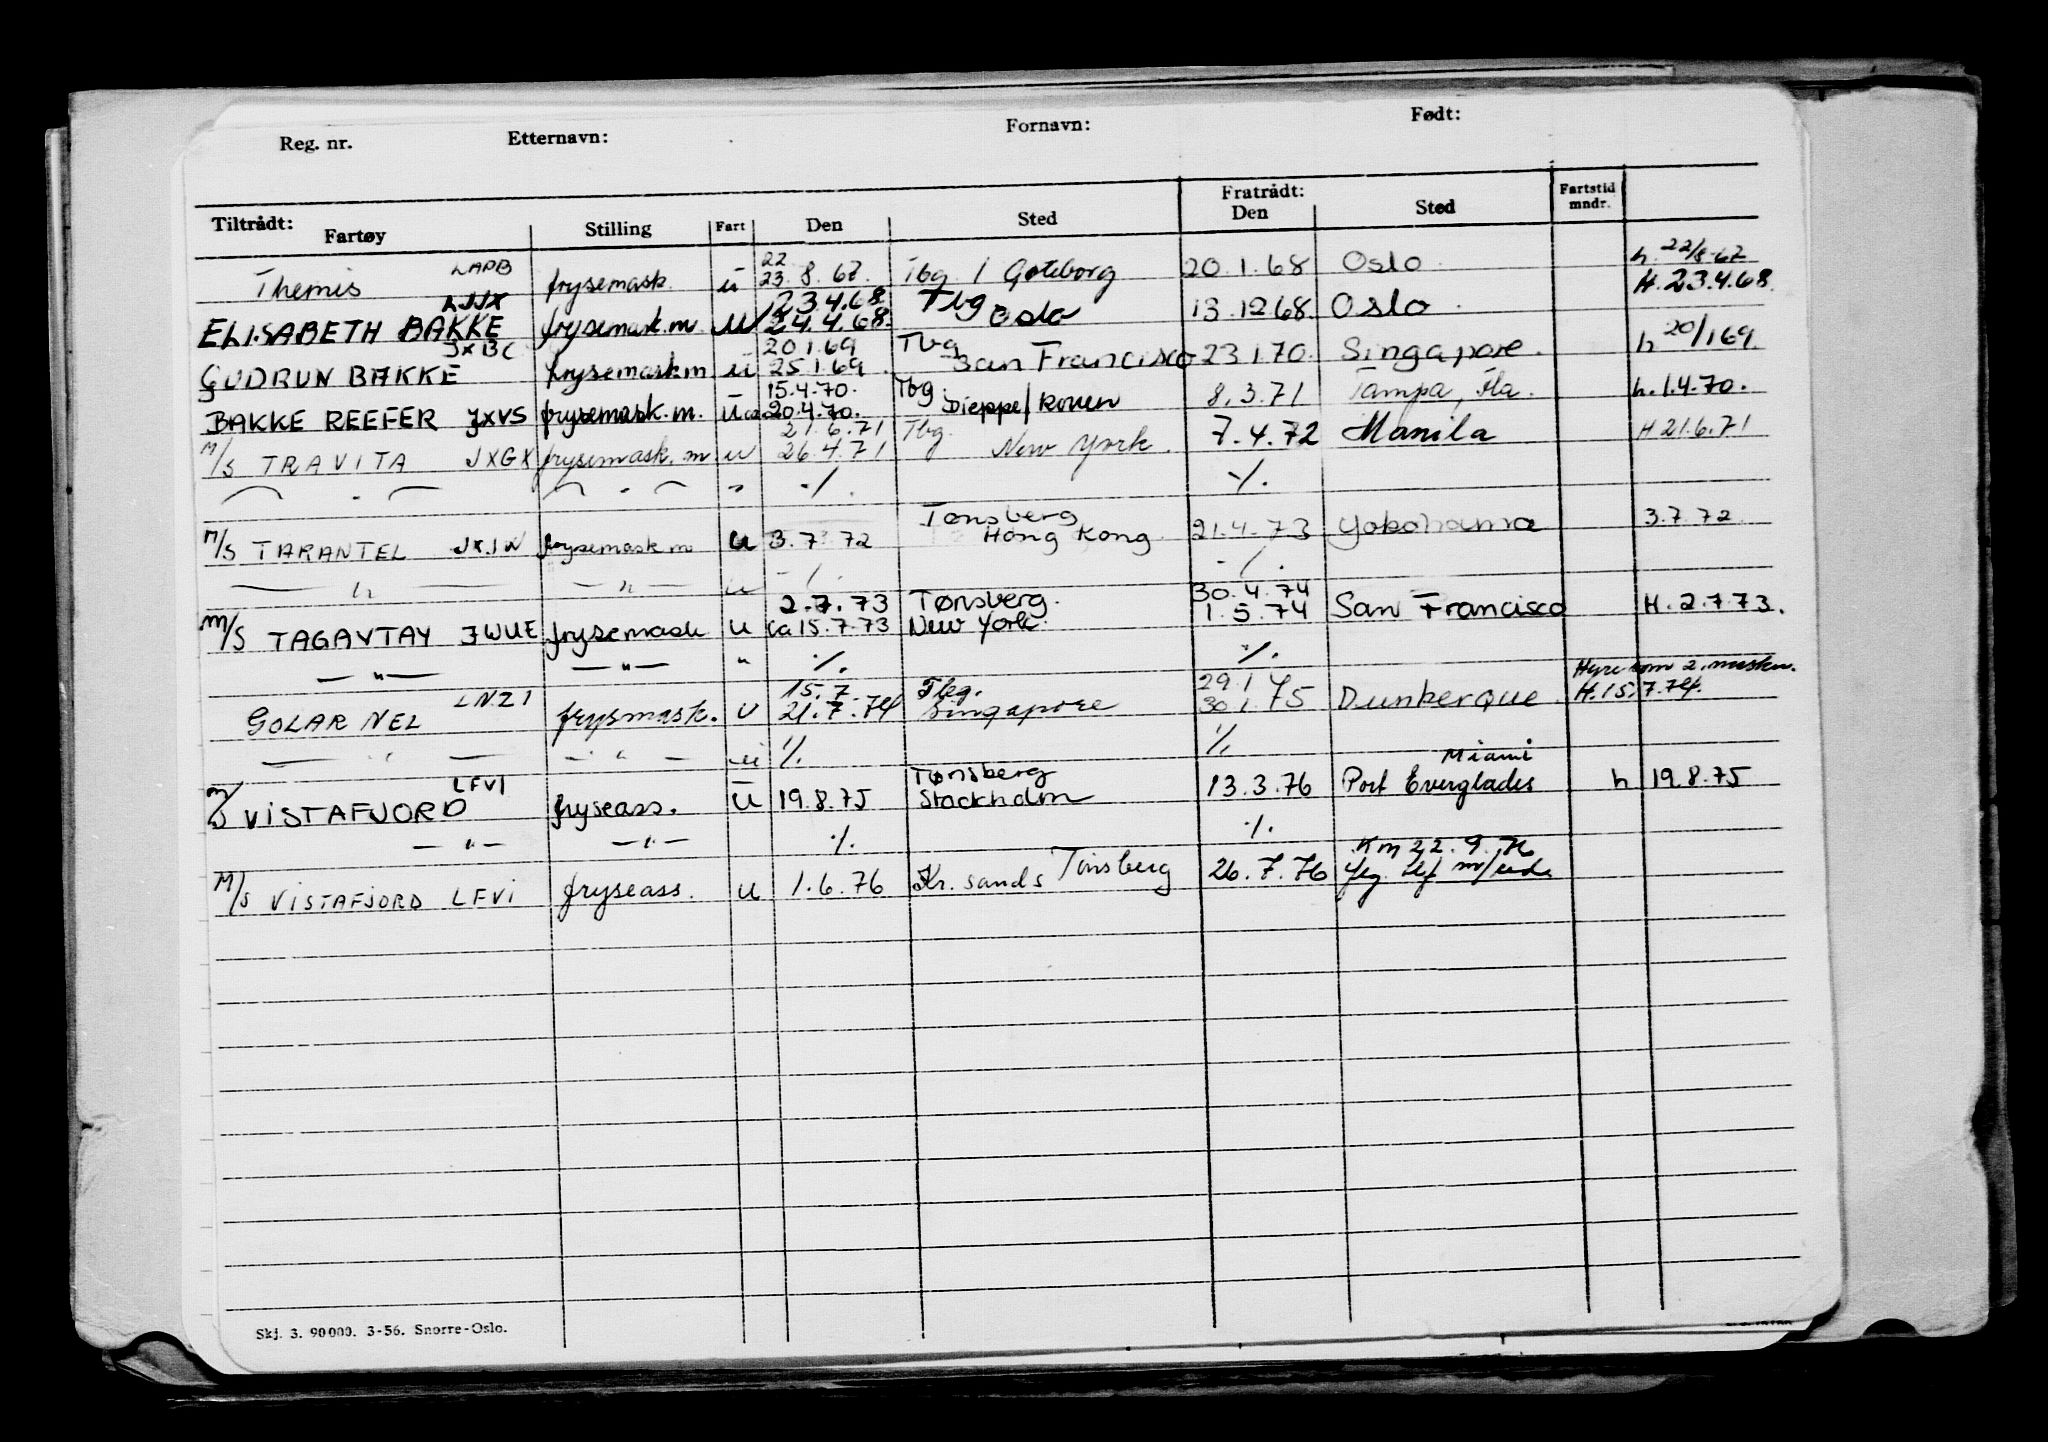 Reg. nr. Etternavn: Fornavn: Født:
Tiltrådt: Fratrådt: Fartstid
Fartøy Stilling Fart Den Sted Den Sted mndr.
LAPB 22 h. 22/8-67
Themis frysemask. u 23.8.67. Tbg / Gøteborg 20.1.68 Oslo
LJJX 23.4.68. Tbg H. 23.4.68.
ELISABETH BAKKE frysemask.m. u 24.4.68. Oslo 13.1268. Oslo
JXBC 20.1.69 Tbg h 20/1 69.
GUDRUN BAKKE frysemask.m. u 25.1.69 San Francisco 23.1.70. Singapore.
15.4.70. Tbg.
BAKKE REEFER JXVS frysemask.m. u ca 20.4.70. Dieppe/Rouen 8.3.71 Tampa, Fla. h.1.4.70.
21.6.71 Tbg.
M/S TRAVITA JXGX frysemask.m u 26.4.71 New York. 7.4.72 Manila H 21.6.71
— " — — " — " ./. ./.
Tønsberg
M/S TARANTEL JXJW frysemask m u 3.7.72 Hong Kong. 21.4.73 Yokohama 3.7.72.
— " — — " — u ./. ./.
2.7.73 Tønsberg. 30.4.74
M/S TAGAYTAY JWUE frysemask u ca 15.7.73 New York. 1.5.74 San Francisco H. 2.7.73.
— " — — " — " ./. ./.
LNZI 15.7. Tbg. 29.1 Hyre som 2. maskn.
GOLAR NEL frysmask. u 21.7.74 Singapore 30.1.75 Dunkerque. H.15.7.74.
— " — — " — u ./. ./.
LFVI Tønsberg Miami
M/S VISTAFJORD fryseass. u 19.8.75 Stockholm 13.3.76 Port Everglades h 19.8.75
— " — — " — ./. ./.
Km 22.9.76
M/S VISTAFJORD LFVI fryseass. u 1.6.76 Kr.sands Tønsberg 26.7.76
Skj. 3. 90000. 3-56. Snorre-Oslo.